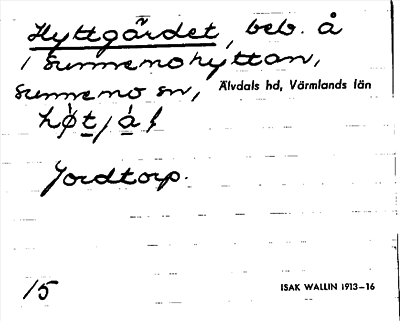 Hyttgårdet, beb. å
/ Sunnemohyttan,
Sunnemo sn, Älvdals hd, Värmlands län
Jordtorp.
15 ISAK WALLIN 1913–16